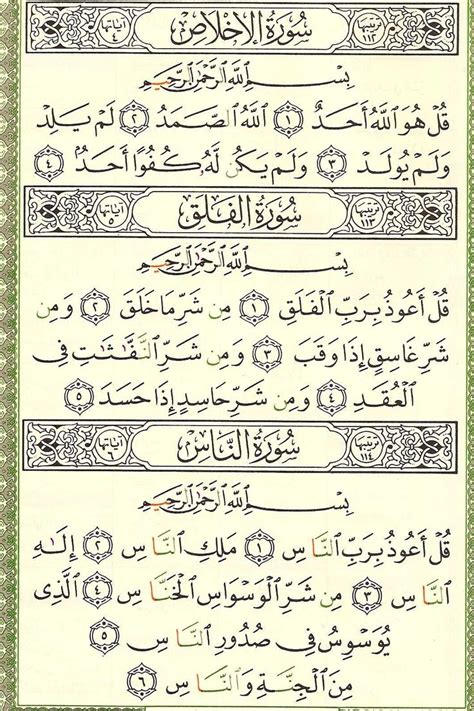 ترتيبها ١١٢ سُورَةُ الإِخْلَاصِ آياتها ٤
بِسْمِ اللَّهِ الرَّحْمَٰنِ الرَّحِيمِ
قُلْ هُوَ اللَّهُ أَحَدٌ ١ اللَّهُ الصَّمَدُ ٢ لَمْ يَلِدْ
وَلَمْ يُولَدْ ٣ وَلَمْ يَكُن لَّهُ كُفُوًا أَحَدٌ ٤
ترتيبها ١١٣ سُورَةُ الفَلَقِ آياتها ٥
بِسْمِ اللَّهِ الرَّحْمَٰنِ الرَّحِيمِ
قُلْ أَعُوذُ بِرَبِّ الْفَلَقِ ١ مِن شَرِّ مَا خَلَقَ ٢ وَمِن
شَرِّ غَاسِقٍ إِذَا وَقَبَ ٣ وَمِن شَرِّ النَّفَّاثَاتِ فِي
الْعُقَدِ ٤ وَمِن شَرِّ حَاسِدٍ إِذَا حَسَدَ ٥
ترتيبها ١١٤ سُورَةُ النَّاسِ آياتها ٦
بِسْمِ اللَّهِ الرَّحْمَٰنِ الرَّحِيمِ
قُلْ أَعُوذُ بِرَبِّ النَّاسِ ١ مَلِكِ النَّاسِ ٢ إِلَٰهِ
النَّاسِ ٣ مِن شَرِّ الْوَسْوَاسِ الْخَنَّاسِ ٤ الَّذِي
يُوَسْوِسُ فِي صُدُورِ النَّاسِ ٥
مِنَ الْجِنَّةِ وَالنَّاسِ ٦